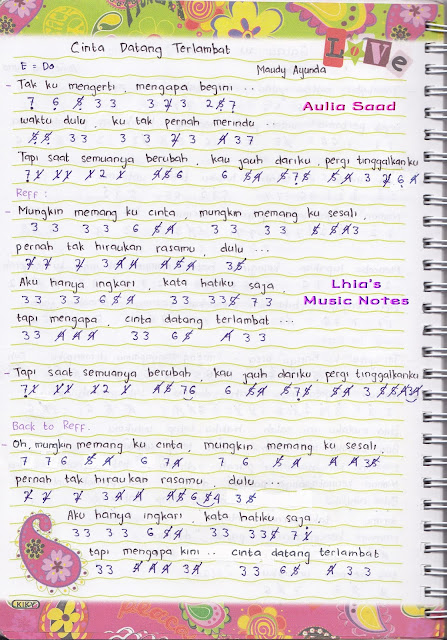 LOVE
Cinta Datang Terlambat
E = Do
Maudy Ayunda
- Tak ku mengerti, mengapa begini ...
7 6 5 3 3 3 2 3 2 5 7
Aulia Saad
waktu dulu, ku tak pernah merindu ...
5 5 3 3 3 3 2 3 4 3 7
Tapi saat semuanya berubah, kau jauh dariku, pergi tinggalkanku
Reff :
- Mungkin memang ku cinta, mungkin memang ku sesali,
3 3 3 3 6 5 4 3 3 3 3 5 5 4 3
pernah tak hiraukan rasamu, dulu ...
2 2 2 3 4 4 4 5 4 3 5
Aku hanya ingkari, kata hatiku saja,
3 3 3 3 6 5 4 3 3 3 3 5 7 3
Lhia's
Music Notes
tapi mengapa, cinta datang terlambat ...
3 3 4 4 4 3 3 6 5 4 3 3
- Tapi saat semuanya berubah, kau jauh dariku pergi tinggalkanku
Back to Reff.
- Oh, mungkin memang ku cinta, mungkin memang ku sesali,
7 7 6 5 4 6 7 4 7 6 5 4 4 4 3 5
pernah tak hiraukan rasamu, dulu ...
2 2 2 3 4 4 4 5 6 5 4 3 5
Aku hanya ingkari, kata hatiku saja,
3 3 3 3 6 5 4 3 3 3 3 5 7 4
tapi mengapa kini .. cinta datang terlambat
3 3 4 4 4 3 4 3 3 6 5 4 3 3
KIKY